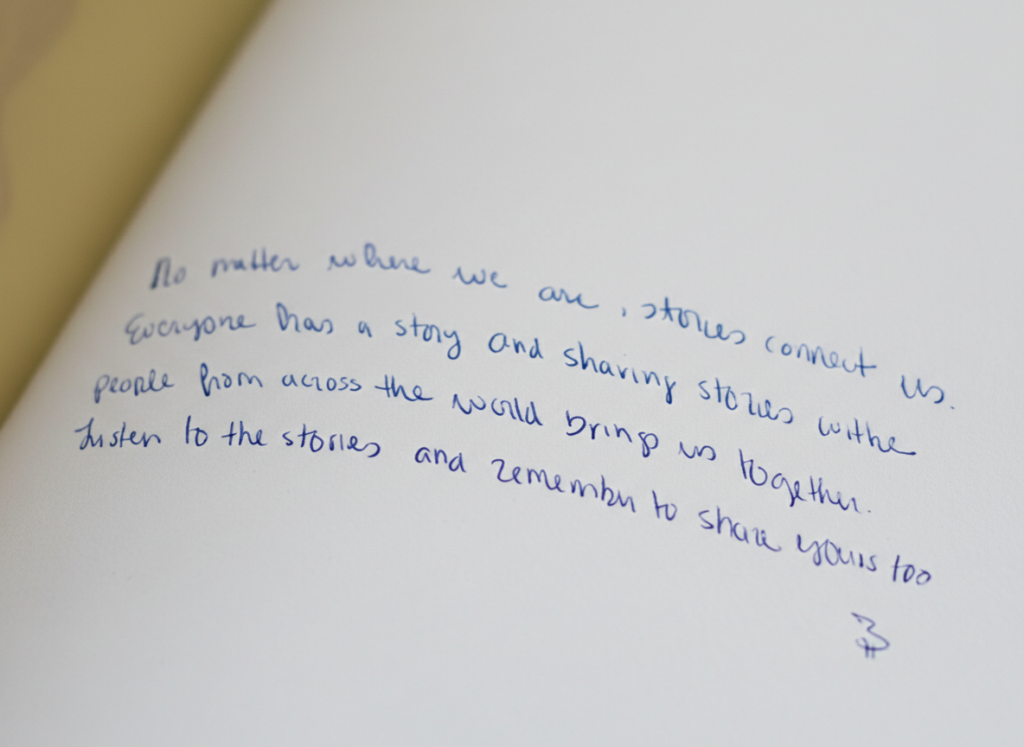 No matter where we are, stories connect us.
Everyone has a story and sharing stories withe
people from across the world brings us together.
Listen to the stories and remember to share yours too